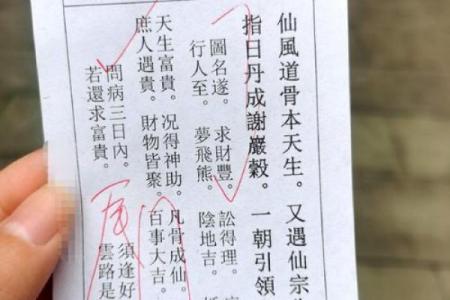 仙風道骨本天生。又遇仙宗
指日丹成謝巖穀。一朝引領
圖名遂。求財豐。訟得理。
行人至。夢飛熊。陰地吉。
天生富貴。况得神助。凡骨成仙。
庶人遇貴。財物皆聚。百事大吉。
問病三日內。須逢好
若還求富貴。雲路是